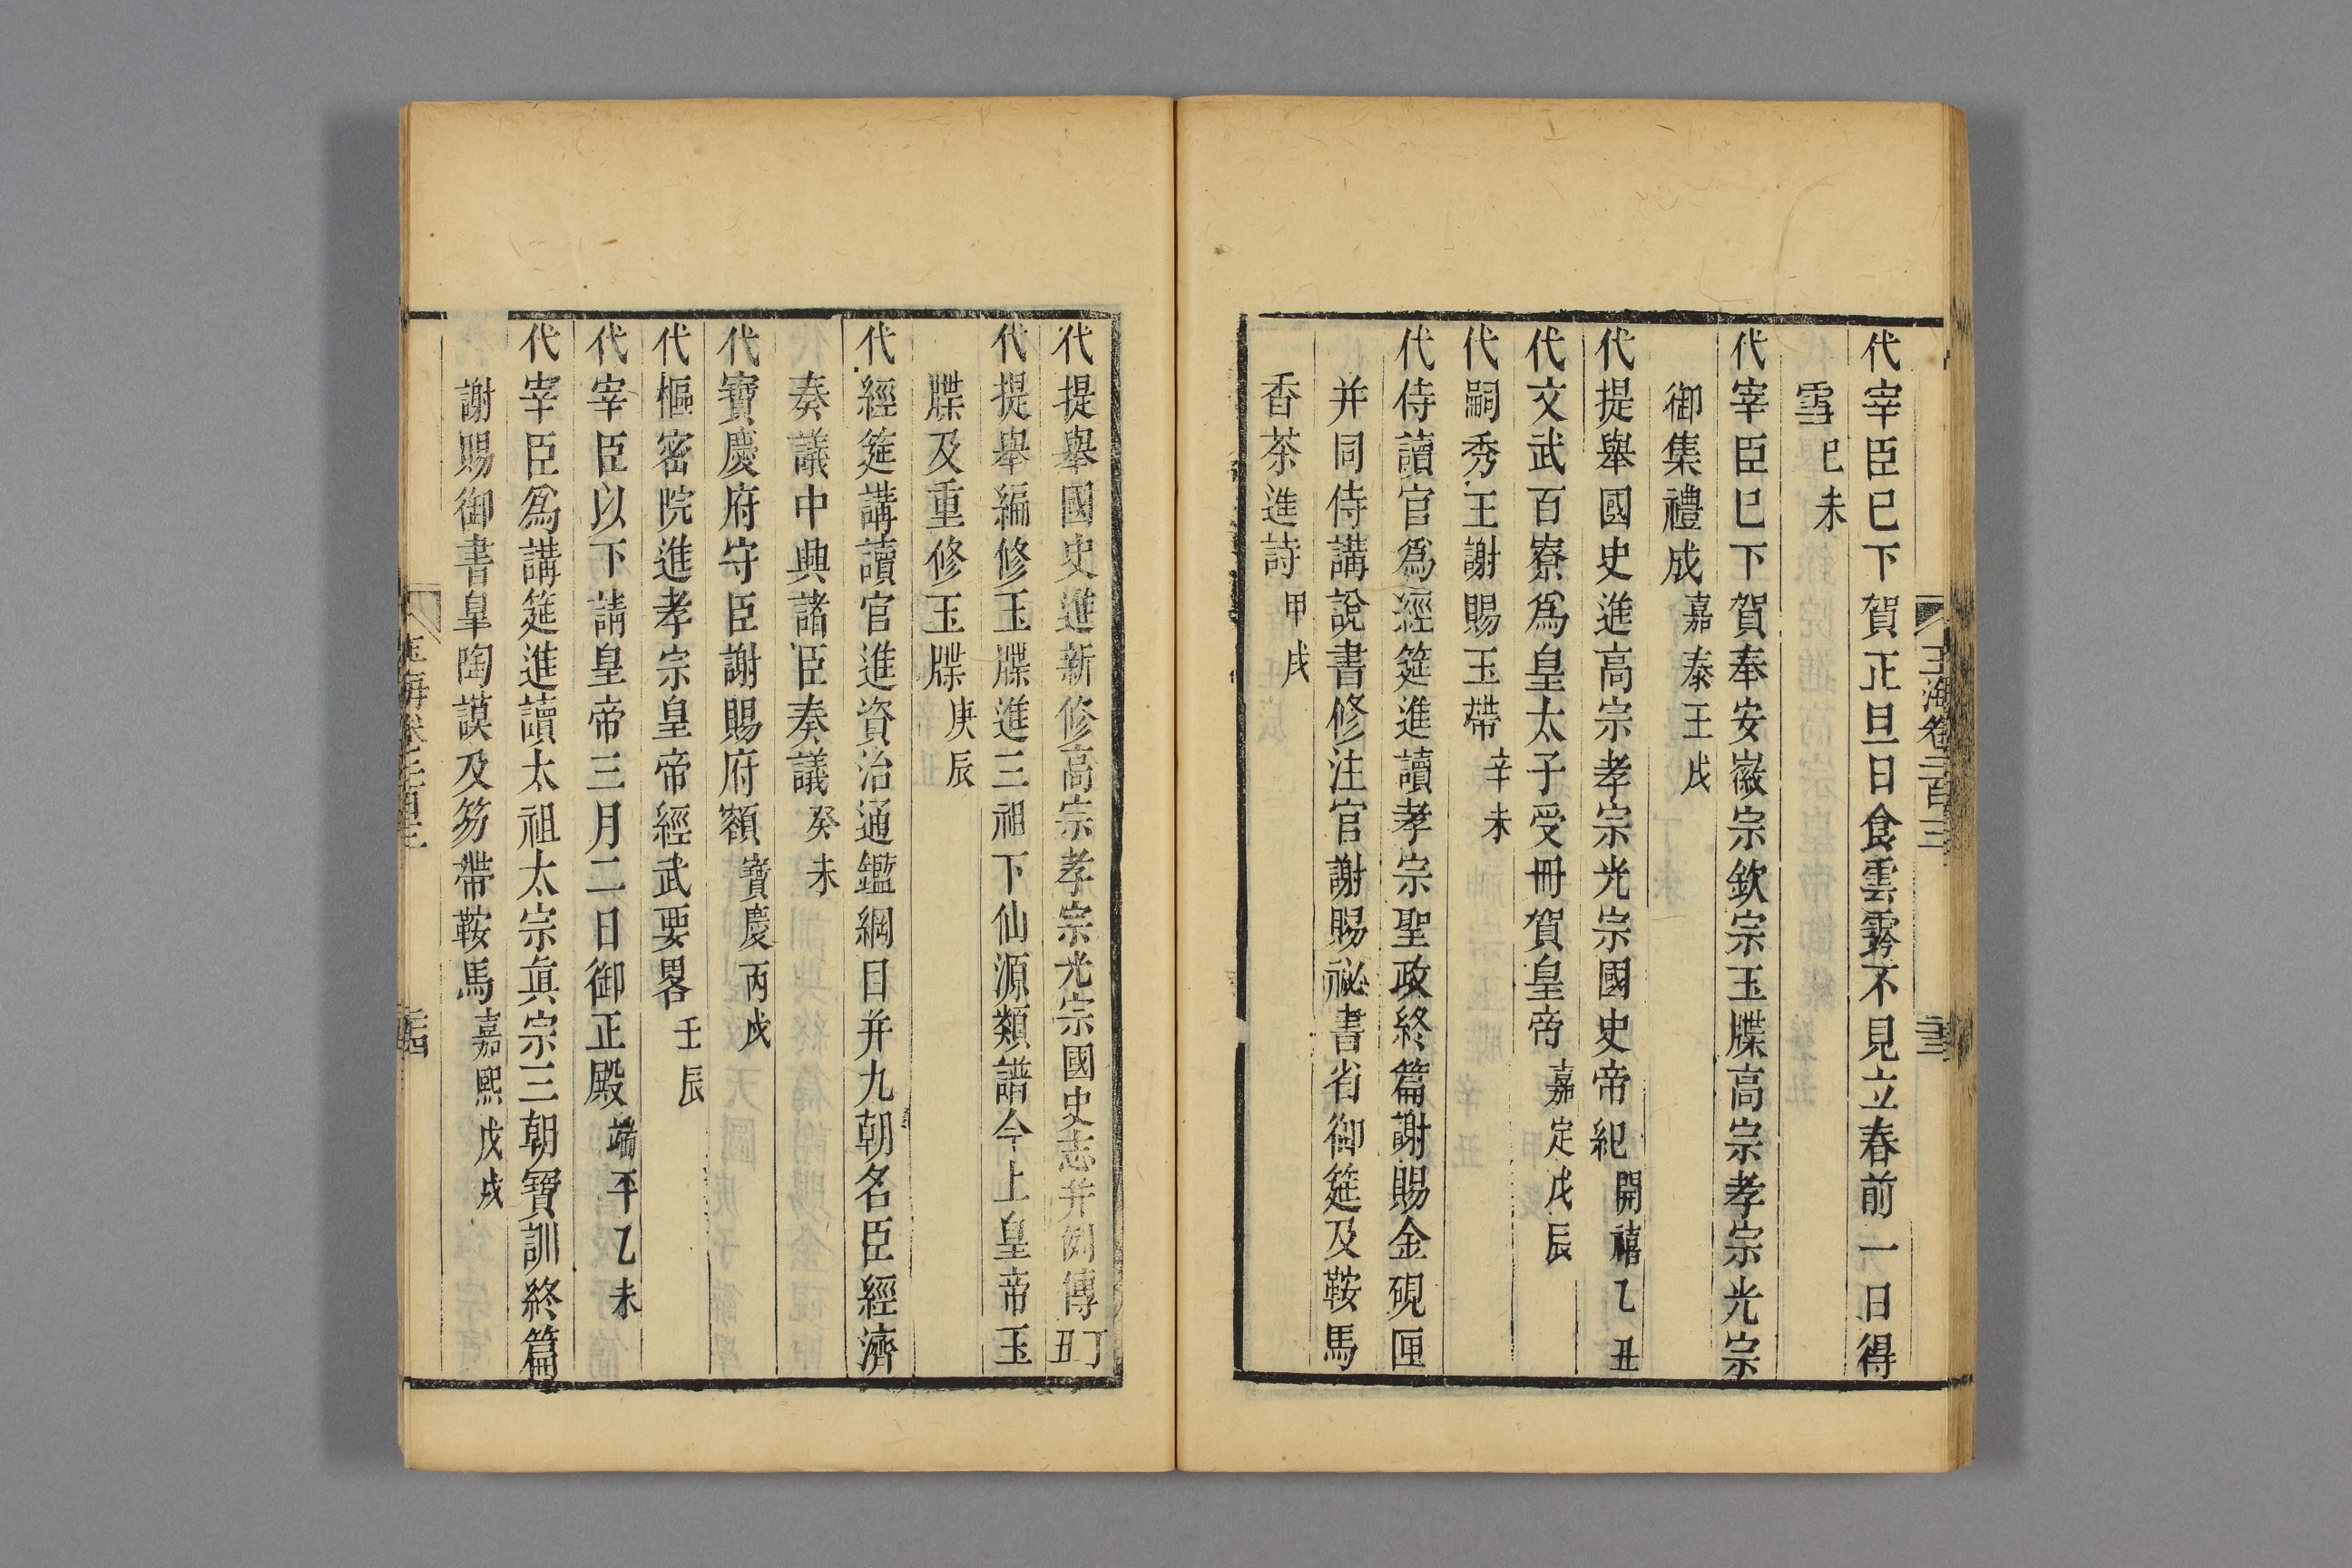 代宰臣巳下賀正旦日食雲霧不見立春前一日得
雪巳未
代宰臣巳下賀奉安徽宗欽宗玉牒高宗孝宗光宗
御集禮成嘉泰王戌
代提舉國史進高宗孝宗光宗國史帝紀開禧乙丑
代文武百寮爲皇太子受冊賀皇帝嘉定戊辰
代嗣秀王謝賜玉帶辛未
代侍讀官爲經筵進讀孝宗聖政終篇謝賜金硯匣
并同侍講說書修注官謝賜祕書省御筵及鞍馬
香茶進詩甲戌
代提舉國史進新修高宗孝宗光宗國史志并列傳丁丑
代提舉編修玉牒進三祖下仙源類譜今上皇帝玉
牒及重修玉牒庚辰
代經筵講讀官進資治通鑑綱目并九朝名臣經濟
奏議中興諸臣奏議癸未
代寶慶府守臣謝賜府額寶慶丙戌
代樞密院進孝宗皇帝經武要畧壬辰
代宰臣以下請皇帝三月二日御正殿端平乙未
代宰臣爲講筵進讀太祖太宗眞宗三朝寶訓終篇
謝賜御書皐陶謨及笏帶鞍馬嘉熙戊戌